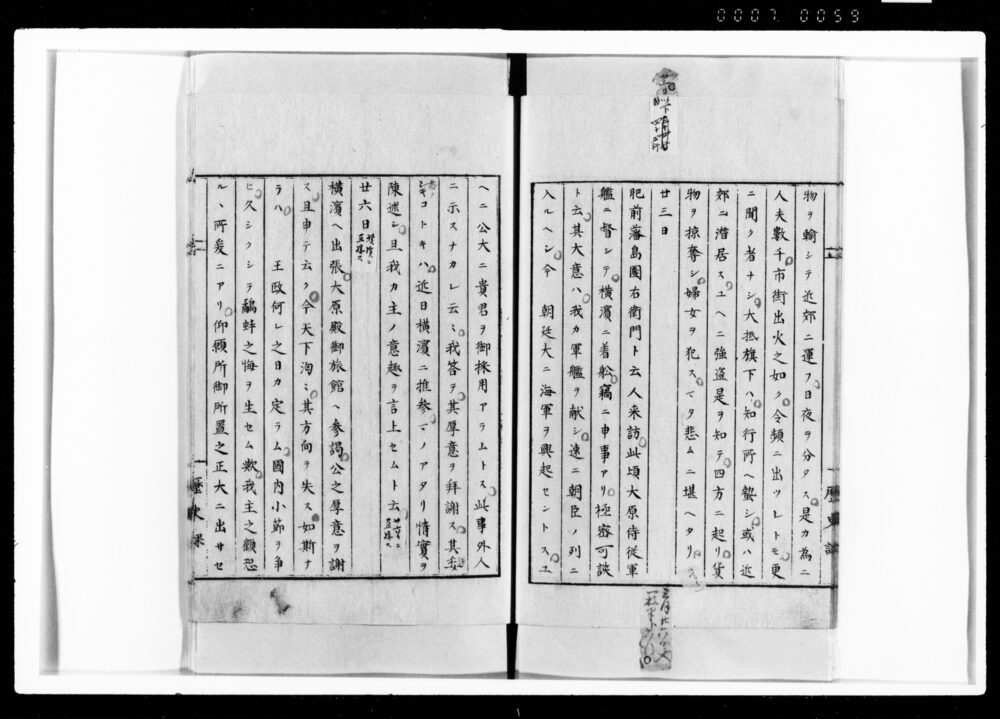 0007 0059
物ヲ輸シテ近郊ニ運フ日夜ヲ分タス是カ為ニ
人夫數千市街出火之如ク令頻ニ出ツレトモ更
ニ聞ク者ナシ大抵旗下ハ知行所ヘ蟄シ或ハ近
郊ニ潜居スユヘニ強盗是ヲ知テ四方ニ起リ貨
物ヲ掠奪シ婦女ヲ犯スマタ悲ムニ堪ヘタリ
廿三日
肥前藩島團右衛門ト云人来訪此頃大原侍従軍
艦ニ督シテ横濱ニ着舩竊ニ申事アリ極密可談
ト云其大意ハ我カ軍艦ヲ献シ速ニ朝臣ノ列ニ
入ルヘシ今 朝廷大ニ海軍ヲ興起セントスユ
歴史課
ヘニ公大ニ貴君ヲ御採用アラムトス此事外人
ニ示スナカレ云ミ我答テ其厚意ヲ拝謝ス其委
コトキハ近日横濱ニ推参マノアタリ情實ヲ
陳述シ且我カ主ノ意趣ヲ言上セムト云
廿六日
横濱ヘ出張大原殿御旅館ヘ参謁公之厚意ヲ謝
ス且申テ云ク今天下洶ミ其方向ヲ失ス如斯ナ
ラハ 王政何レ之日カ定ラム國内小節ヲ争
ヒ久シクシテ鷸蚌之悔ヲ生セム歟我主之顧恐
ルヽ所爰ニアリ仰願所御所置之正大ニ出サセ
歴史課